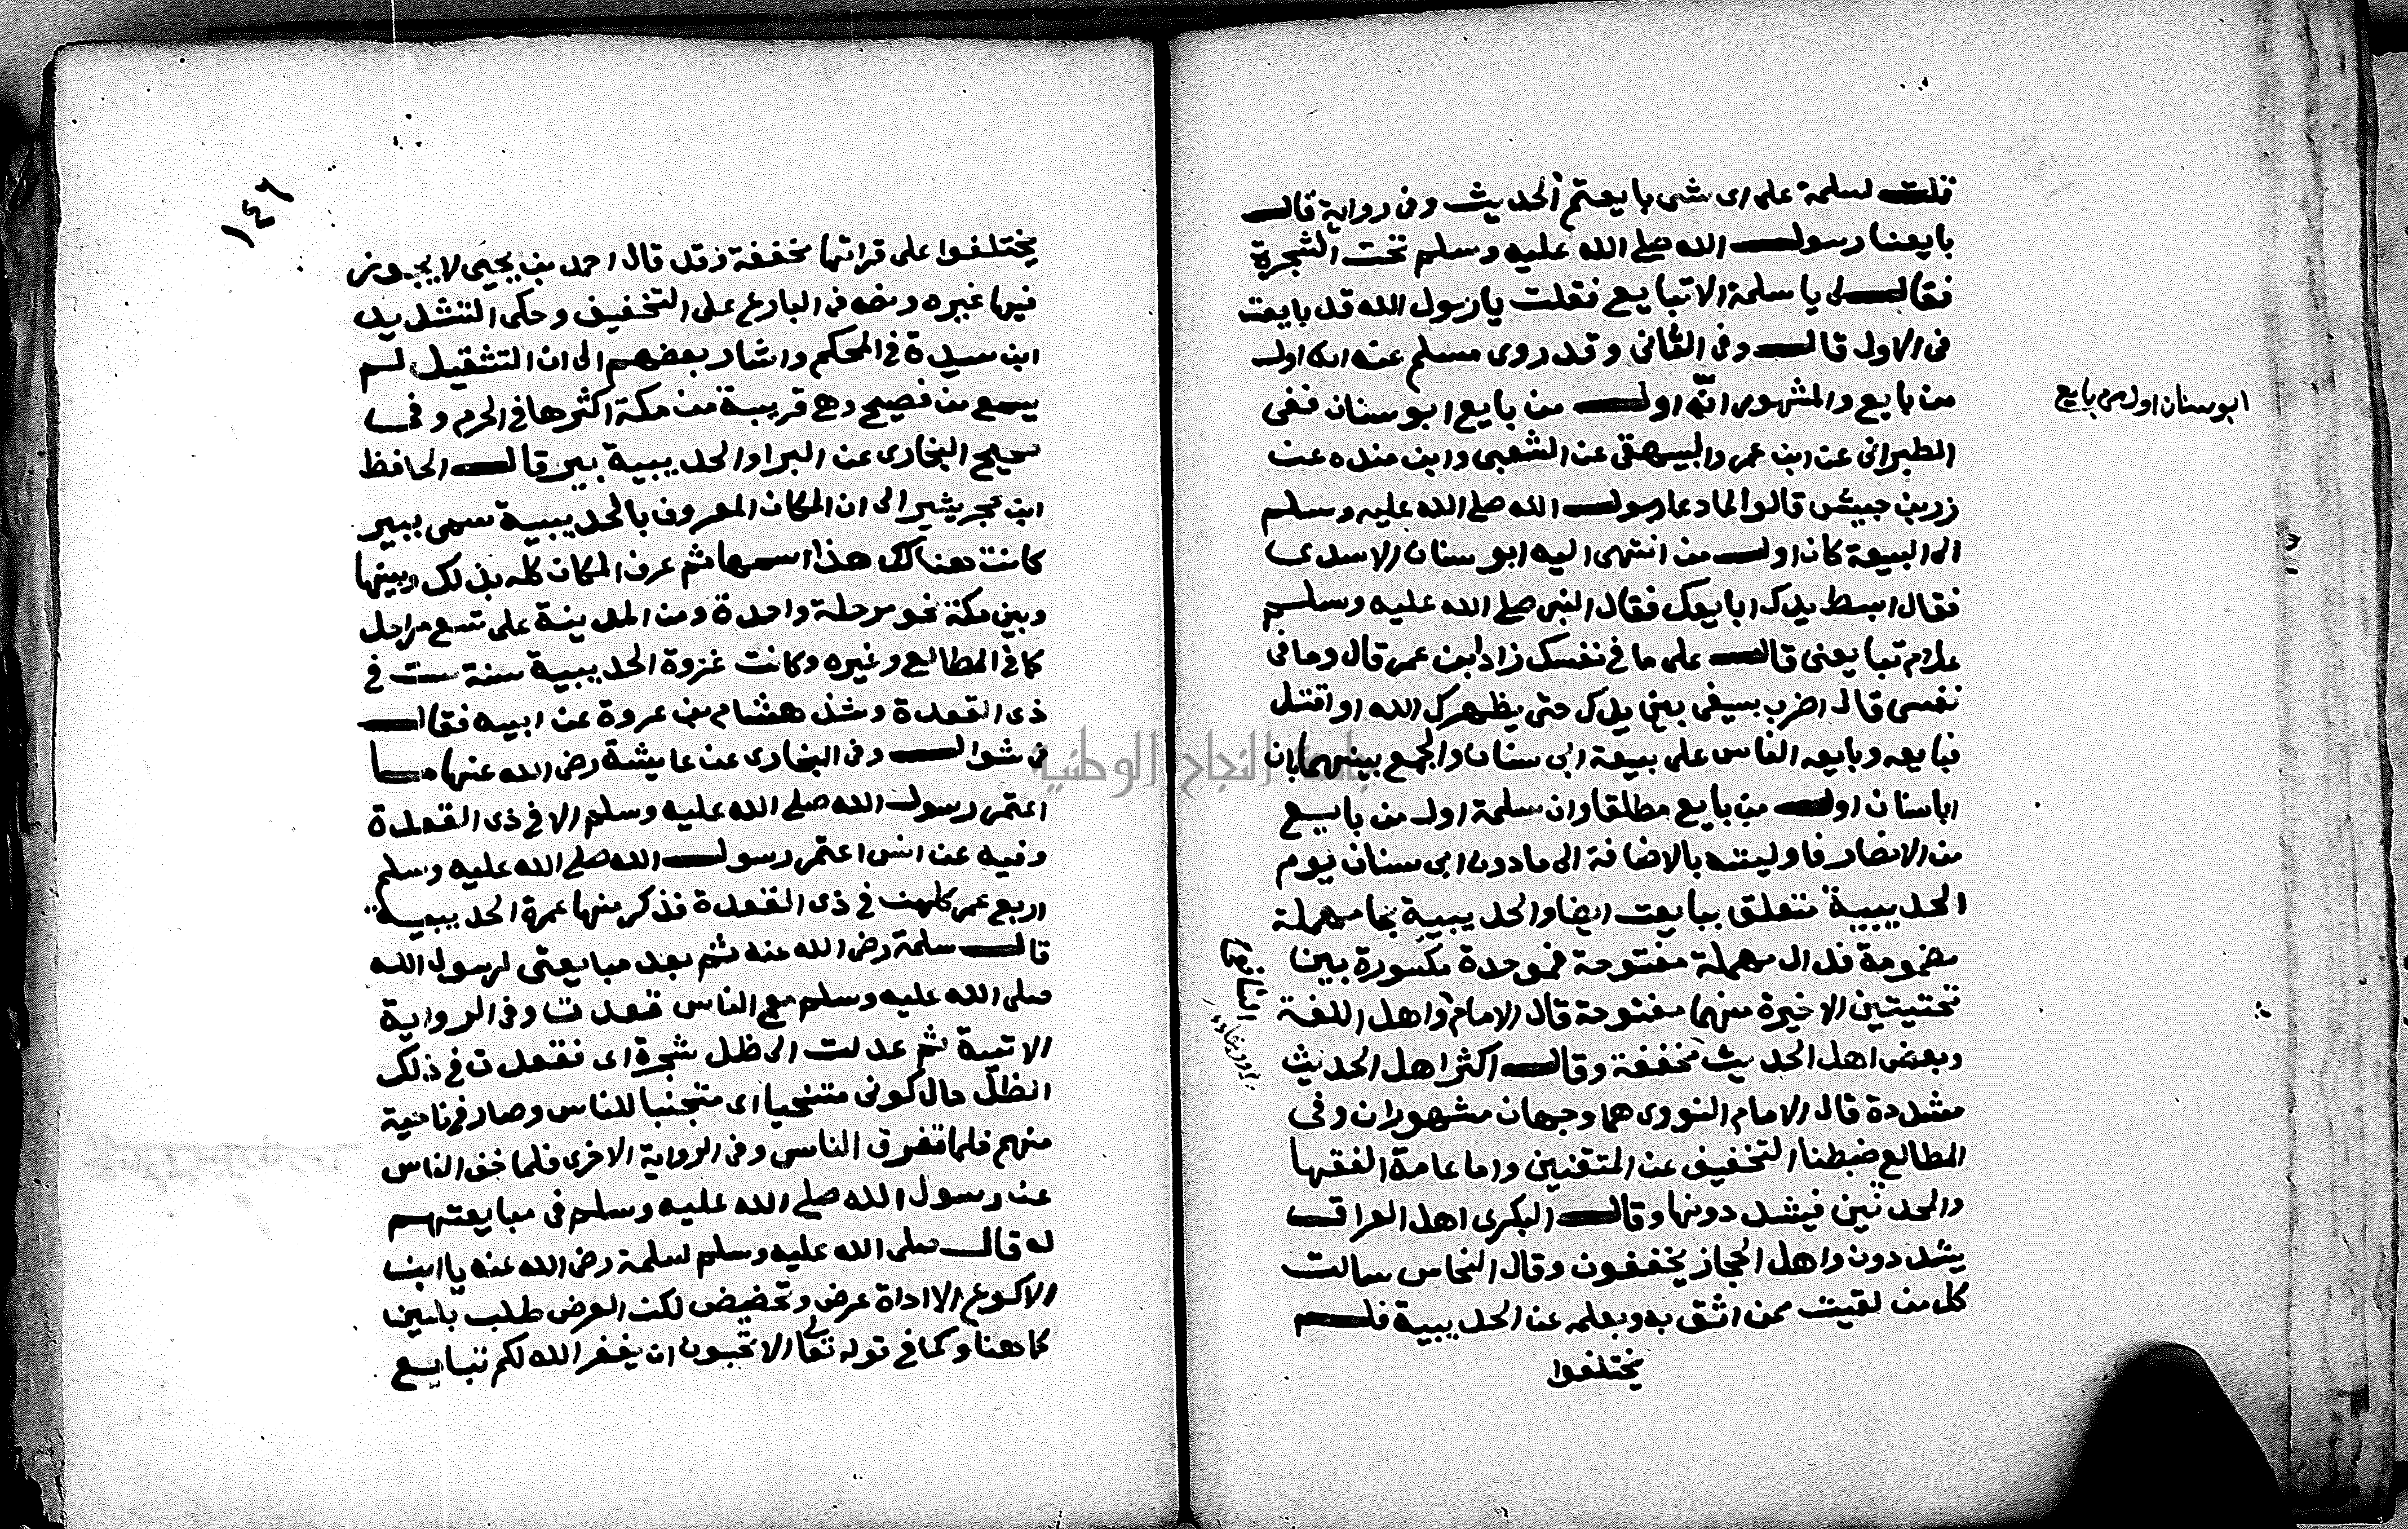 قلت لسلمة على اى شى بايعتم الحديث وفى رواية قال
بايعنا رسول الله صلى الله عليه وسلم تحت الشجرة
فقال لى يا سلمة الا تبايع فقلت يا رسول الله قد بايعت
فى الاول قال وفى الثانى وقد روى مسلم عنه انه اول
من بايع والمشهور انه اول من بايع ابو سنان ففى
ابو سنان اول من بايع
الطبرانى عن ابن عمر والبيهقى عن الشعبى وابن منده عن
زر بن حبيش قالوا لما دعا رسول الله صلى الله عليه وسلم
الى البيعة كان اول من انتهى اليه ابو سنان الاسدى
فقال ابسط يدك ابايعك فقال النبى صلى الله عليه وسلم
علام تبايعنى قال على ما فى نفسك زاد ابن عمر قال وما فى
نفسى قال اضرب بسيفى بين يديك حتى يظهرك الله او اقتل
فبايعه وبايعه الناس على بيعة ابى سنان والجمع بينهما بان
ابا سنان اول من بايع مطلقا وان سلمة اول من بايع
من الانصار فاوليته بالاضافة الى ما دون ابى سنان يوم
الحديبية متعلق ببايعت ايضا والحديبية بحا مهملة
مضمومة فدال مهملة مفتوحة فموحدة مكسورة بين
تحتيتين الاخيرة منهما مفتوحة قال الامام واهل اللغة
الشافعى
وبعض اهل الحديث مخففة وقال اكثر اهل الحديث
مشددة قال الامام النووى هما وجهان مشهوران وفى
المطالع ضبطنا التخفيف عن المتقنين واما عامة الفقها
والمحدثين فيشددونها وقال البكرى اهل العراق
يشددون واهل الحجاز يخففون وقال النحاس سالت
كل من لقيت ممن اثق به وبعلمه عن الحديبية فلم
يختلفوا
١٤٦
يختلفوا على قراتها مخففة وقد قال احمد بن يحيى لا يجوز
فيها غيره ونصه فى البارع على التخفيف وحكى التشديد
ابن سيدة فى المحكم واشار بعضهم الى ان التثقيل لم
يسمع من فصيح وهى قريبة من مكة اكثرها فى الحرم وفى
صحيح البخارى عن البرا والحديبية بير قال الحافظ
ابن حجر يشير الى ان المكان المعروف بالحديبية سمى ببير
كانت هنالك هذا اسمها ثم عرف المكان كله بذلك وبينها
وبين مكة نحو مرحلة واحدة ومن المدينة على تسع مراحل
كما فى المطالع وغيره وكانت غزوة الحديبية سنة ست فى
ذى القعدة وشذ هشام بن عروة عن ابيه فقال
فى شوال وفى البخارى عن عايشة رضى الله عنها ما
اعتمر رسول الله صلى الله عليه وسلم الا فى ذى القعدة
وفيه عن انس اعتمر رسول الله صلى الله عليه وسلم
اربع عمر كلهن فى ذى القعدة فذكر منها عمرة الحديبية
قال سلمة رضى الله عنه ثم بعد مبايعتى لرسول الله
صلى الله عليه وسلم مع الناس قعدت وفى الرواية
الاتية ثم عدلت الى ظل شجرة اى فقعدت فى ذلك
الظل حال كونى متنحيا اى متجنبا للناس وصار فى ناحية
منهم فلما تفرق الناس وفى الرواية الاخرى فلما خف الناس
عن رسول الله صلى الله عليه وسلم فى مبايعتهم
له قال صلى الله عليه وسلم لسلمة رضى الله عنه يا ابن
الاكوع الا اداة عرض وتحضيض لكن العرض طلب بلين
كما هنا وكما فى قوله تعالى الا تحبون ان يغفر الله لكم تبايع
جامعة النجاح الوطنية